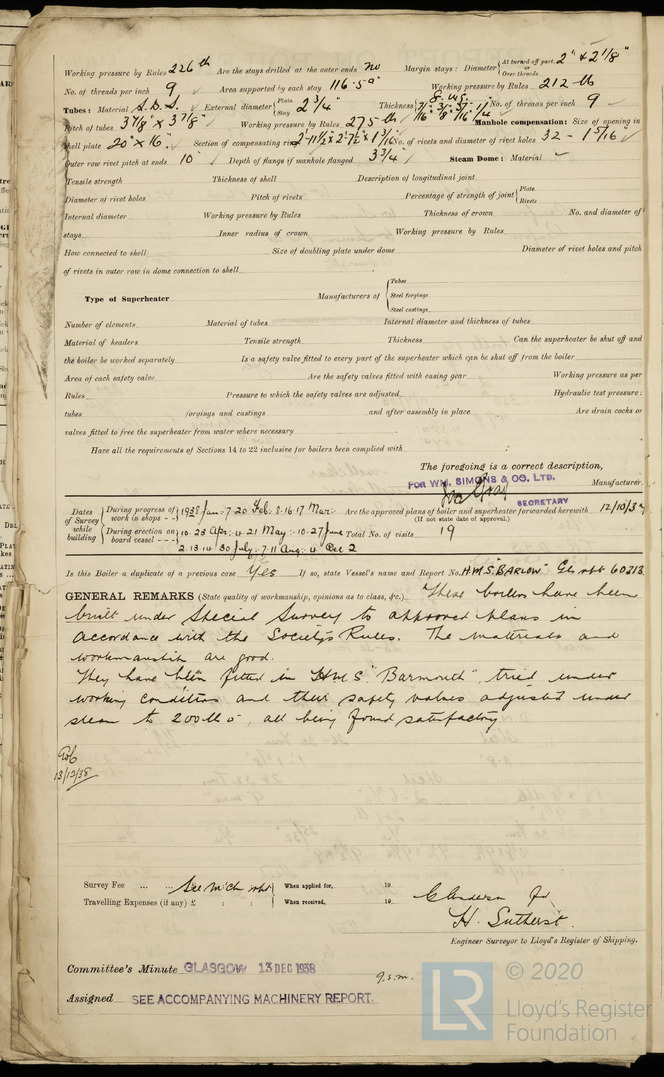 Working pressure by Rules 226 lb Are the stays drilled at the outer ends no Margin stays: Diameter { At turned off part, or Over threads 2" & 2 1/8"
No. of threads per inch 9 Area supported by each stay 116.5 □" Working pressure by Rules 212 lb
Tubes: Material S.D.S. External diameter { Plain Stay 2 3/4" Thickness { 8 W.G. 7/16" 3/8" 5/16" 1/4" No. of threads per inch 9
Pitch of tubes 3 7/8" x 3 7/8" Working pressure by Rules 275 lb Manhole compensation: Size of opening in
shell plate 20" x 16" Section of compensating ring 2'-11 1/2" x 2'-7 1/2" x 1 3/16" No. of rivets and diameter of rivet holes 32 - 1 5/16"
Outer row rivet pitch at ends 10" Depth of flange if manhole flanged 3 3/4" Steam Dome: Material
Tensile strength Thickness of shell Description of longitudinal joint
Diameter of rivet holes Pitch of rivets Percentage of strength of joint { Plate Rivets
Internal diameter Working pressure by Rules Thickness of crown No. and diameter of
stays Inner radius of crown Working pressure by Rules
How connected to shell Size of doubling plate under dome Diameter of rivet holes and pitch
of rivets in outer row in dome connection to shell
Type of Superheater Manufacturers of { Tubes Steel forgings Steel castings
Number of elements Material of tubes Internal diameter and thickness of tubes
Material of headers Tensile strength Thickness Can the superheater be shut off and
the boiler be worked separately Is a safety valve fitted to every part of the superheater which can be shut off from the boiler
Area of each safety valve Are the safety valves fitted with easing gear Working pressure as per
Rules Pressure to which the safety valves are adjusted Hydraulic test pressure:
tubes forgings and castings and after assembly in place Are drain cocks or
valves fitted to free the superheater from water where necessary
Have all the requirements of Sections 14 to 22 inclusive for boilers been complied with
The foregoing is a correct description,
FOR WM. SIMONS & CO. LTD. Manufacturer.
Jno Gray SECRETARY
Dates of Survey while building { During progress of work in shops - - 1938 Jan: 7. 20 Feb: 8. 16. 17 Mar: Are the approved plans of boiler and superheater forwarded herewith 12/10/37
(If not state date of approval.)
During erection on board vessel - - - 10. 23 Apr: 4. 21 May: 10. 27 June Total No. of visits 19
2. 13. 14. 30 July: 7. 11 Aug: 4 Dec 2
Is this Boiler a duplicate of a previous case Yes If so, state Vessel's name and Report No. H.M.S. "BARLOW" Gls rpt 60313
GENERAL REMARKS (State quality of workmanship, opinions as to class, &c.) These boilers have been
built under Special Survey to approved plans in
accordance with the Society's Rules. The materials and
workmanship are good.
They have been fitted in HMS "Barmouth" tried under
working condition and their safety valves adjusted under
steam to 200 lbs □", all being found satisfactory
13/12/38
Survey Fee ... ... See Mch rpt { When applied for, 19
Travelling Expenses (if any) £ : : When received, 19
H. Sutherst
Engineer Surveyor to Lloyd's Register of Shipping.
Committee's Minute GLASGOW 13 DEC 1938
Assigned SEE ACCOMPANYING MACHINERY REPORT.
LR © 2020
Lloyd's Register
Foundation